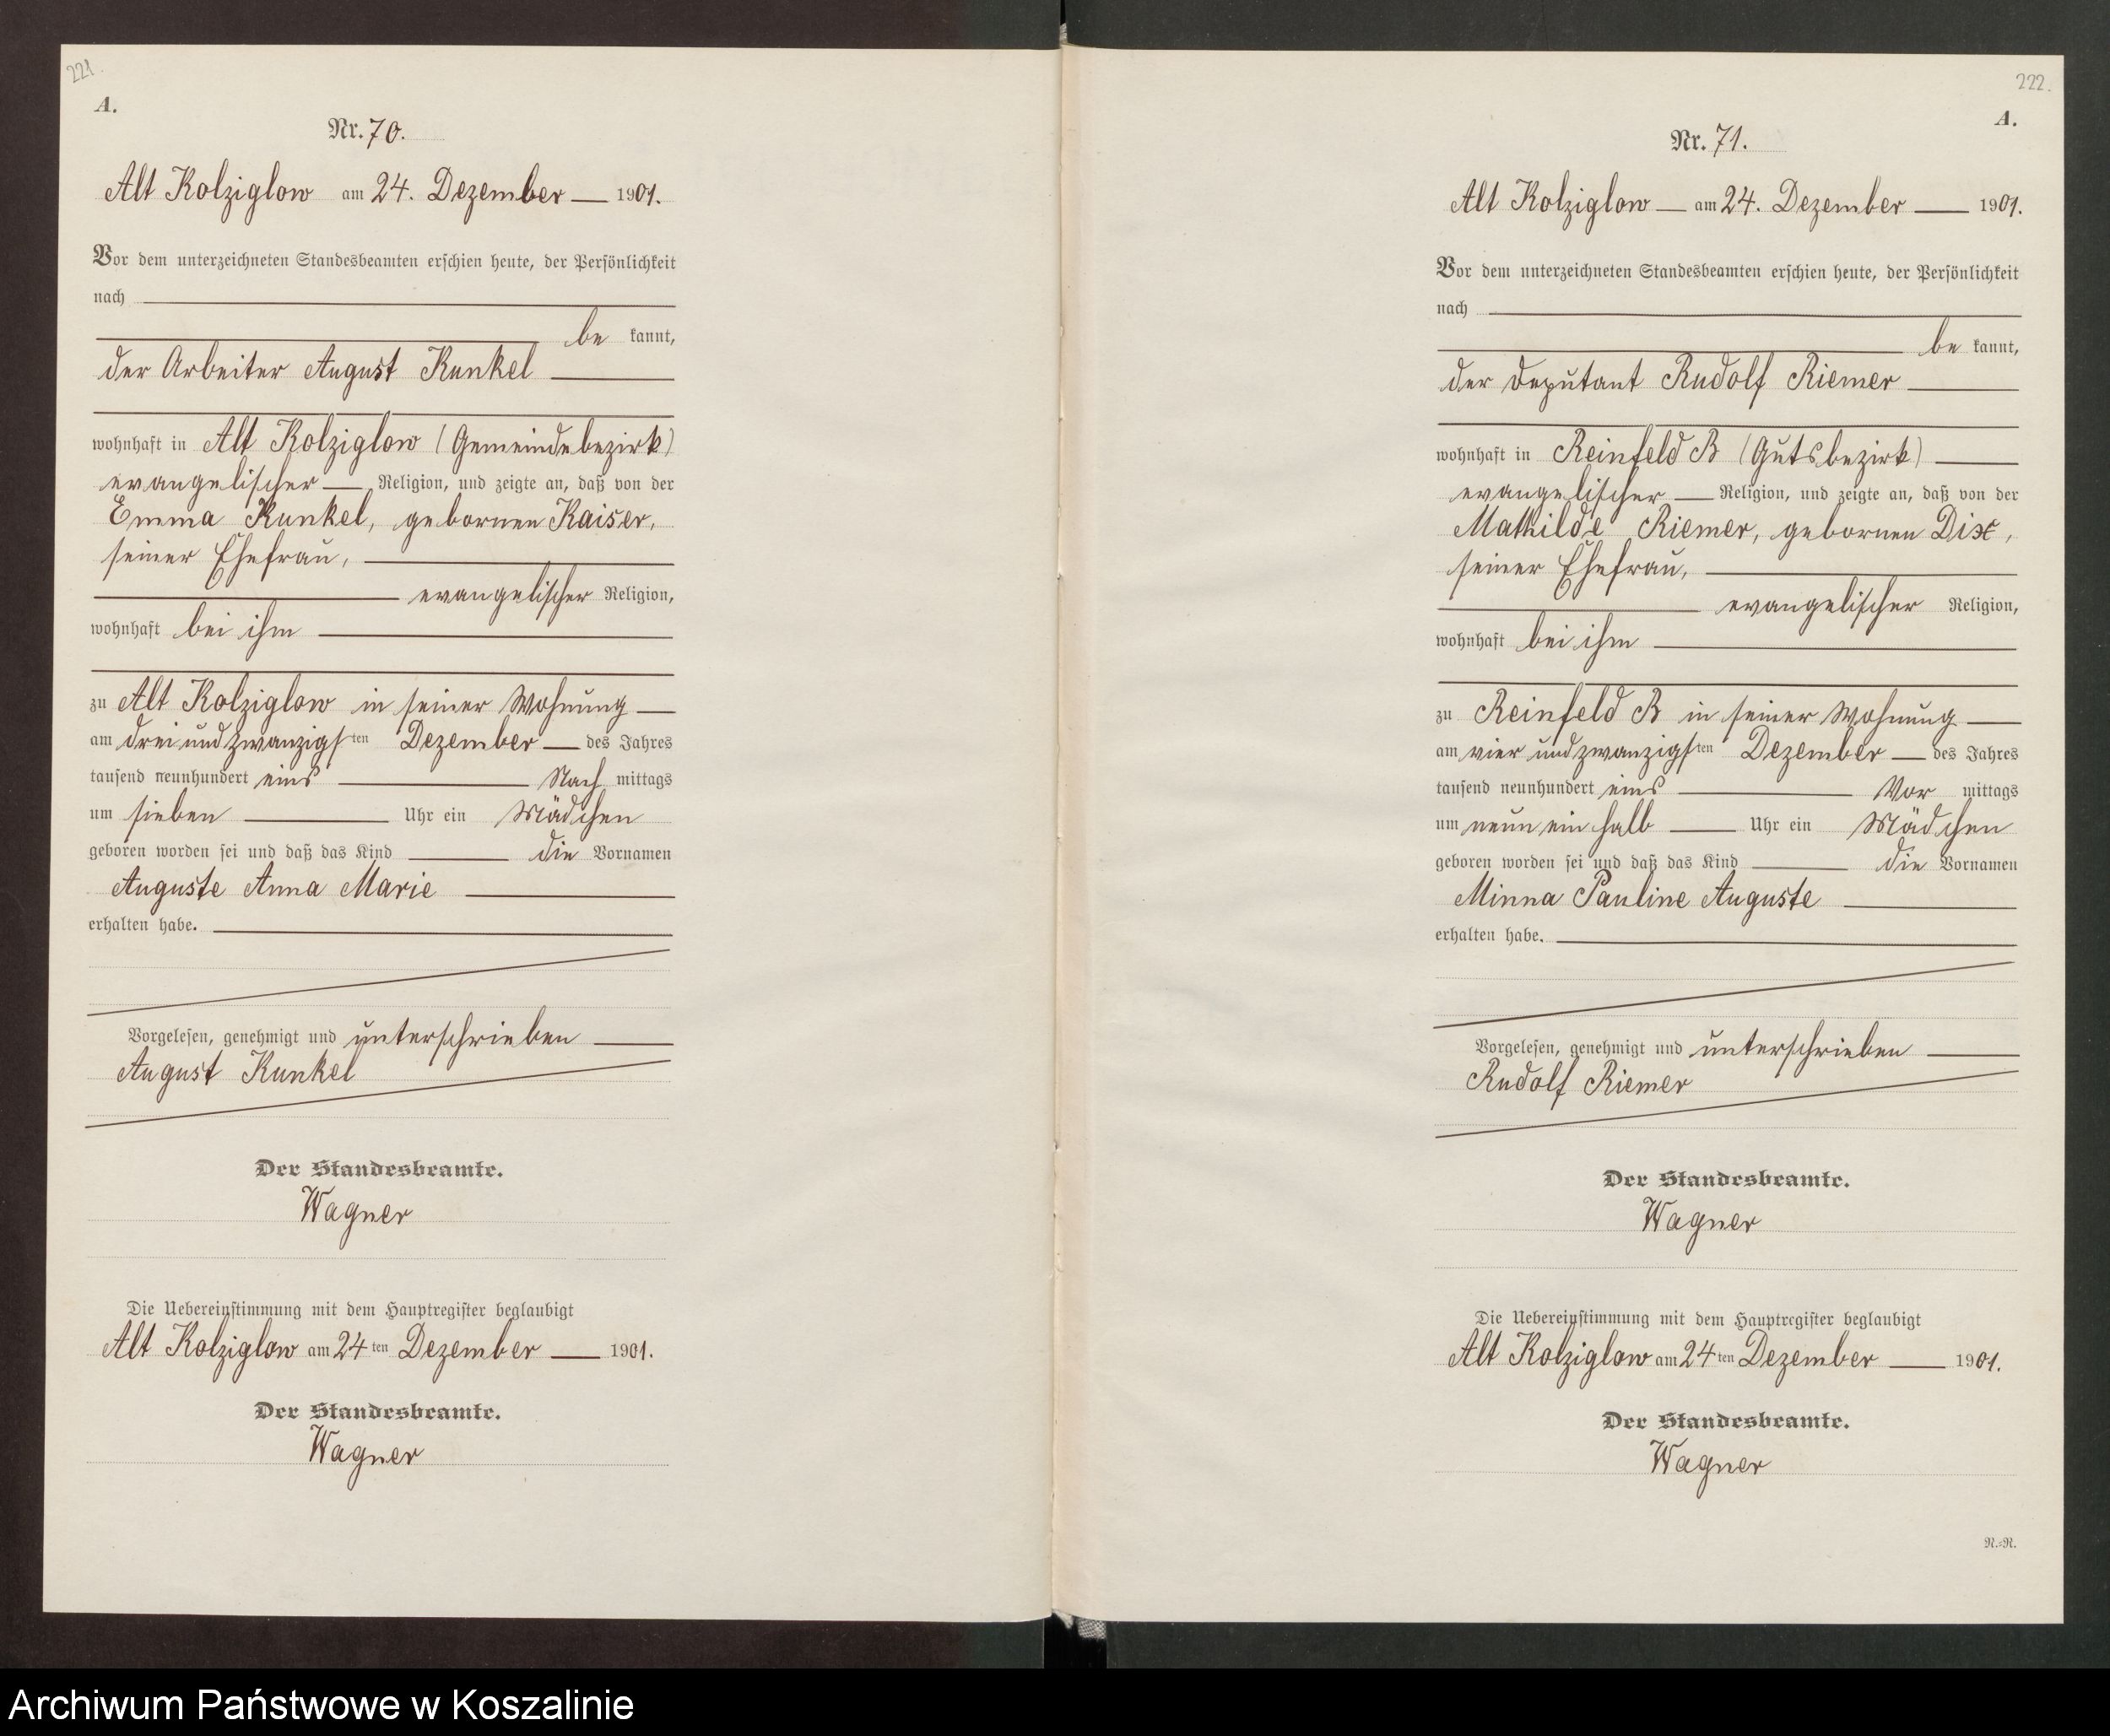 221.
A.
Nr. 70.
Alt Kolziglow am 24. Dezember 1901.
Vor dem unterzeichneten Standesbeamten erschien heute, der Persönlichkeit
nach
be kannt,
der Arbeiter August Kunkel
wohnhaft in Alt Kolziglow (Gemeindebezirk)
evangelischer Religion, und zeigte an, daß von der
Emma Kunkel, gebornen Kaiser,
seiner Ehefrau,
evangelischer Religion,
wohnhaft bei ihm
zu Alt Kolziglow in seiner Wohnung
am drei und zwanzigsten Dezember des Jahres
tausend neunhundert eins Nach mittags
um sieben Uhr ein Mädchen
geboren worden sei und daß das Kind die Vornamen
Auguste Anna Marie
erhalten habe.
Vorgelesen, genehmigt und unterschrieben
August Kunkel
Der Standesbeamte.
Wagner
Die Uebereinstimmung mit dem Hauptregister beglaubigt
Alt Kolziglow am 24 ten Dezember 1901.
Der Standesbeamte.
Wagner
222.
A.
Nr. 71.
Alt Kolziglow am 24. Dezember 1901.
Vor dem unterzeichneten Standesbeamten erschien heute, der Persönlichkeit
nach
be kannt,
der Deputant Rudolf Riemer
wohnhaft in Reinfeld B (Gutsbezirk)
evangelischer Religion, und zeigte an, daß von der
Mathilde Riemer, gebornen Dix,
seiner Ehefrau,
evangelischer Religion,
wohnhaft bei ihm
zu Reinfeld B in seiner Wohnung
am vier und zwanzigsten Dezember des Jahres
tausend neunhundert eins Vor mittags
um neun ein halb Uhr ein Mädchen
geboren worden sei und daß das Kind die Vornamen
Minna Pauline Auguste
erhalten habe.
Vorgelesen, genehmigt und unterschrieben
Rudolf Riemer
Der Standesbeamte.
Wagner
Die Uebereinstimmung mit dem Hauptregister beglaubigt
Alt Kolziglow am 24 ten Dezember 1901.
Der Standesbeamte.
Wagner
R.=R.
Archiwum Państwowe w Koszalinie